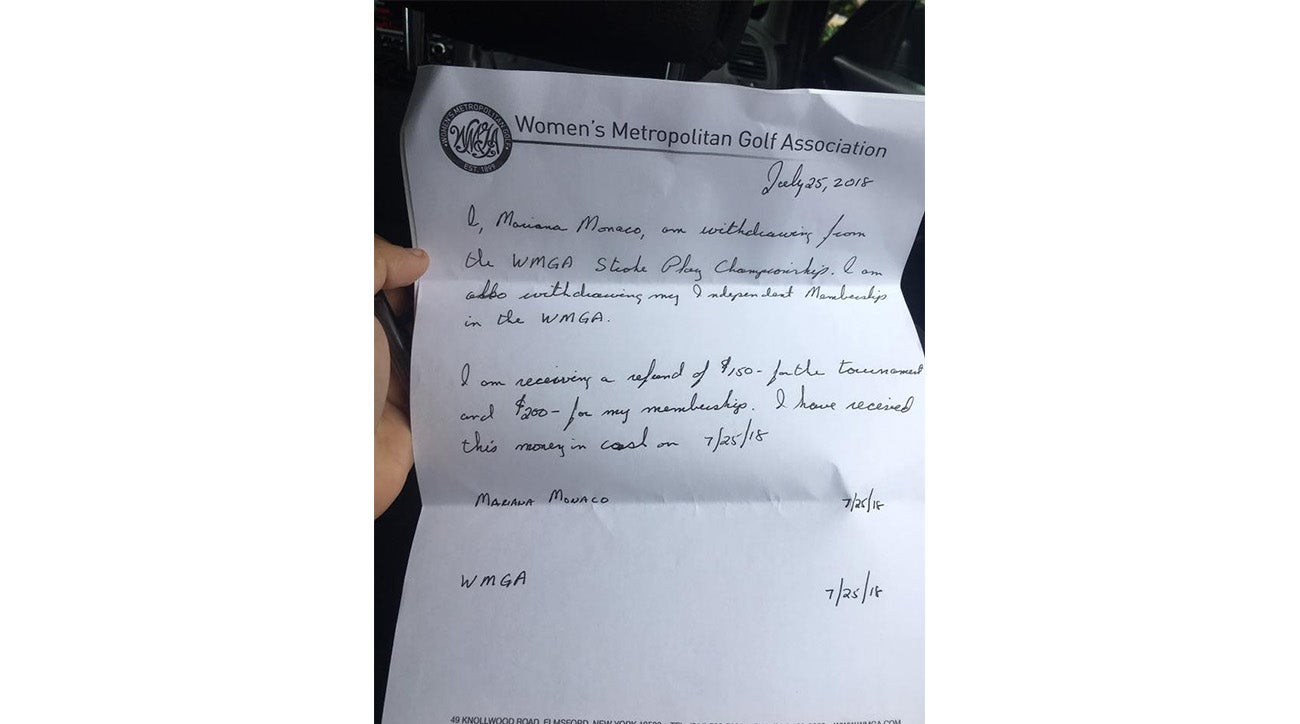 WOMEN'S METROPOLITAN GOLF
WMGA
EST. 1899
Women's Metropolitan Golf Association
July 25, 2018
I, Mariana Monaco, am withdrawing from
the WMGA Stroke Play Championship. I am
also withdrawing my Independent Membership
in the WMGA.
I am receiving a refund of $150- for the tournament
and $200- for my membership. I have received
this money in cash on 7/25/18
MARIANA MONACO 7/25/18
WMGA 7/25/18
49 KNOLLWOOD ROAD, ELMSFORD, NEW YORK